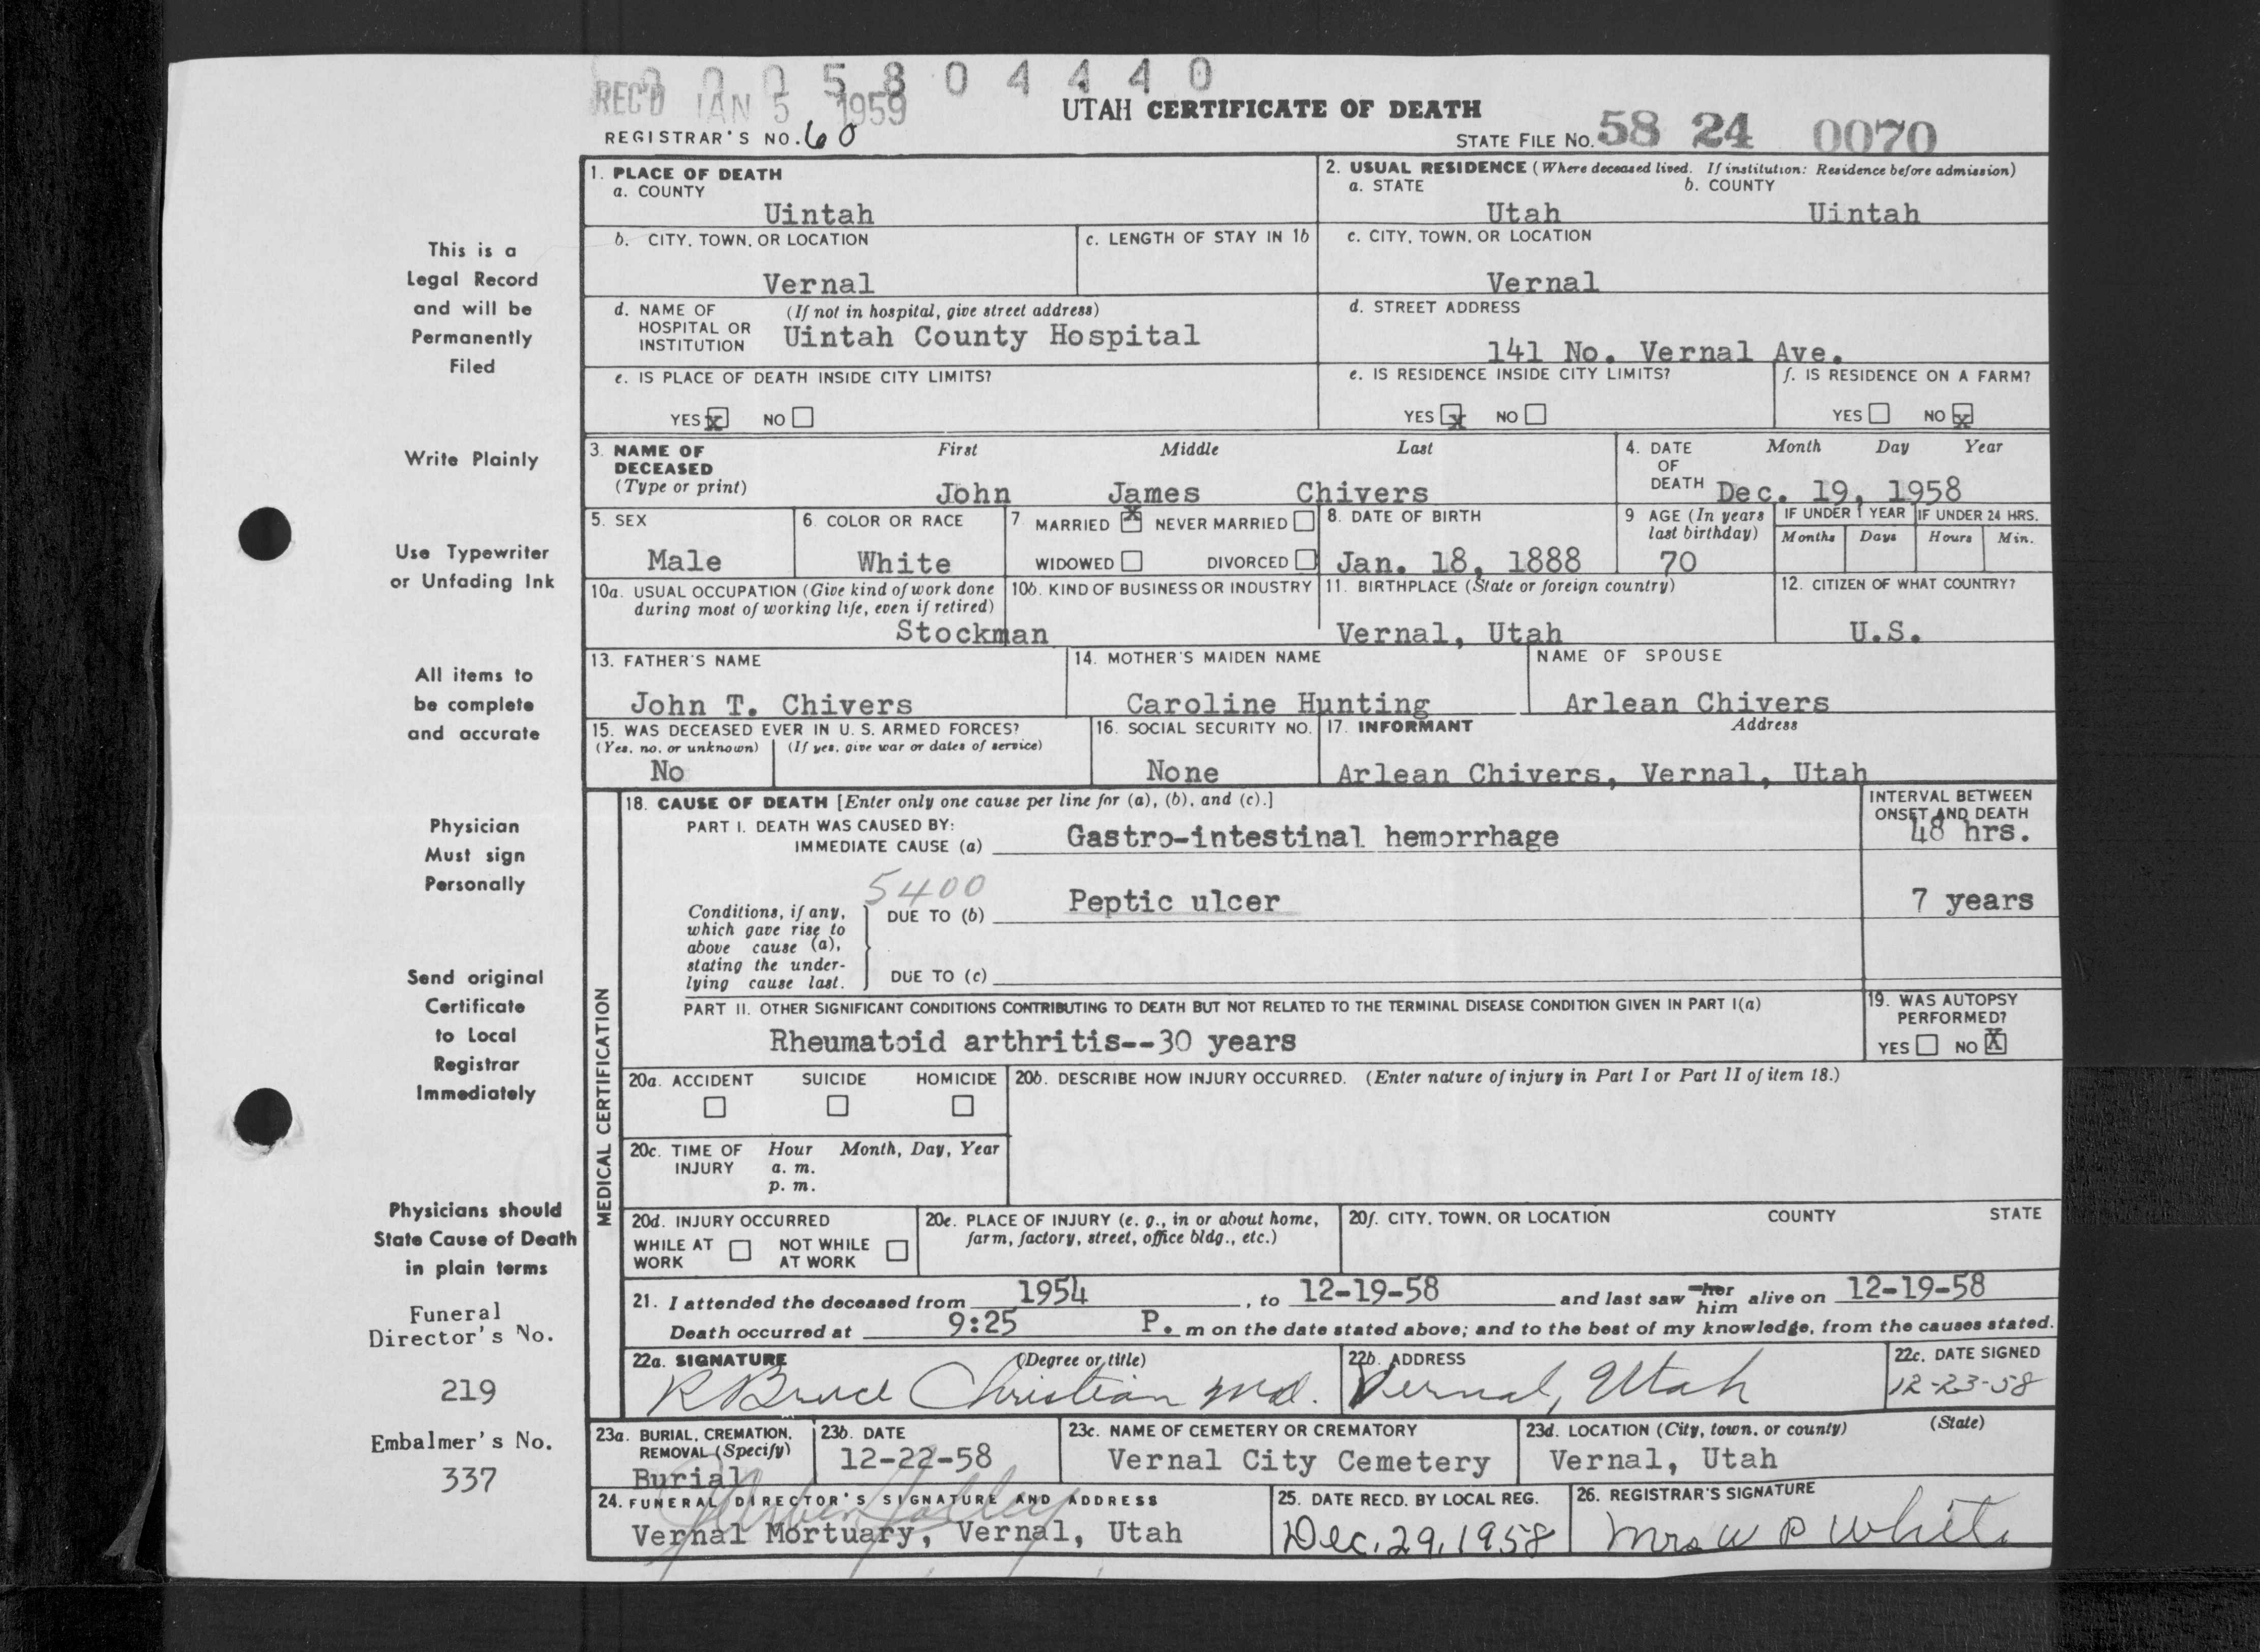 0 0 0 5 8 0 4 4 4 0
REC'D JAN 5 1959
UTAH CERTIFICATE OF DEATH
REGISTRAR'S NO. 60
STATE FILE NO. 58 24 0070
1. PLACE OF DEATH
a. COUNTY
Uintah
2. USUAL RESIDENCE (Where deceased lived. If institution: Residence before admission)
a. STATE b. COUNTY
Utah Uintah
b. CITY, TOWN, OR LOCATION
Vernal
c. LENGTH OF STAY IN 1b
c. CITY, TOWN, OR LOCATION
Vernal
d. NAME OF (If not in hospital, give street address)
HOSPITAL OR
INSTITUTION Uintah County Hospital
d. STREET ADDRESS
141 No. Vernal Ave.
e. IS PLACE OF DEATH INSIDE CITY LIMITS?
YES x NO
e. IS RESIDENCE INSIDE CITY LIMITS?
YES x NO
f. IS RESIDENCE ON A FARM?
YES NO x
3. NAME OF
DECEASED
(Type or print)
First Middle Last
John James Chivers
4. DATE
OF
DEATH
Month Day Year
Dec. 19, 1958
5. SEX
Male
6. COLOR OR RACE
White
7. MARRIED x NEVER MARRIED
WIDOWED DIVORCED
8. DATE OF BIRTH
Jan. 18, 1888
9 AGE (In years
last birthday)
70
IF UNDER 1 YEAR
Months Days
IF UNDER 24 HRS.
Hours Min.
10a. USUAL OCCUPATION (Give kind of work done
during most of working life, even if retired)
Stockman
10b. KIND OF BUSINESS OR INDUSTRY
11. BIRTHPLACE (State or foreign country)
Vernal, Utah
12. CITIZEN OF WHAT COUNTRY?
U.S.
13. FATHER'S NAME
John T. Chivers
14. MOTHER'S MAIDEN NAME
Caroline Hunting
NAME OF SPOUSE
Arlean Chivers
15. WAS DECEASED EVER IN U. S. ARMED FORCES?
(Yes, no, or unknown) (If yes, give war or dates of service)
No
16. SOCIAL SECURITY NO.
None
17. INFORMANT Address
Arlean Chivers, Vernal, Utah
MEDICAL CERTIFICATION
18. CAUSE OF DEATH [Enter only one cause per line for (a), (b), and (c).]
PART I. DEATH WAS CAUSED BY:
IMMEDIATE CAUSE (a) Gastro-intestinal hemorrhage
INTERVAL BETWEEN
ONSET AND DEATH
48 hrs.
5400
Conditions, if any,
which gave rise to
above cause (a),
stating the under-
lying cause last.
DUE TO (b) Peptic ulcer
7 years
DUE TO (c)
PART II. OTHER SIGNIFICANT CONDITIONS CONTRIBUTING TO DEATH BUT NOT RELATED TO THE TERMINAL DISEASE CONDITION GIVEN IN PART I(a)
Rheumatoid arthritis--30 years
19. WAS AUTOPSY
PERFORMED?
YES NO X
20a. ACCIDENT SUICIDE HOMICIDE
20b. DESCRIBE HOW INJURY OCCURRED. (Enter nature of injury in Part I or Part II of item 18.)
20c. TIME OF Hour Month, Day, Year
INJURY a. m.
p. m.
20d. INJURY OCCURRED
WHILE AT NOT WHILE
WORK AT WORK
20e. PLACE OF INJURY (e. g., in or about home,
farm, factory, street, office bldg., etc.)
20f. CITY, TOWN, OR LOCATION COUNTY STATE
21. I attended the deceased from 1954, to 12-19-58 and last saw her him alive on 12-19-58
Death occurred at 9:25 P. m on the date stated above; and to the best of my knowledge, from the causes stated.
22a. SIGNATURE (Degree or title)
R Bruce Christian Md.
22b. ADDRESS
Vernal, Utah
22c. DATE SIGNED
12-23-58
23a. BURIAL, CREMATION,
REMOVAL (Specify)
Burial
23b. DATE
12-22-58
23c. NAME OF CEMETERY OR CREMATORY
Vernal City Cemetery
23d. LOCATION (City, town, or county) (State)
Vernal, Utah
24. FUNERAL DIRECTOR'S SIGNATURE AND ADDRESS
Vernal Mortuary, Vernal, Utah
25. DATE RECD. BY LOCAL REG.
Dec. 29, 1958
26. REGISTRAR'S SIGNATURE
Mrs W P White
This is a
Legal Record
and will be
Permanently
Filed
Write Plainly
Use Typewriter
or Unfading Ink
All items to
be complete
and accurate
Physician
Must sign
Personally
Send original
Certificate
to Local
Registrar
Immediately
Physicians should
State Cause of Death
in plain terms
Funeral
Director's No.
219
Embalmer's No.
337